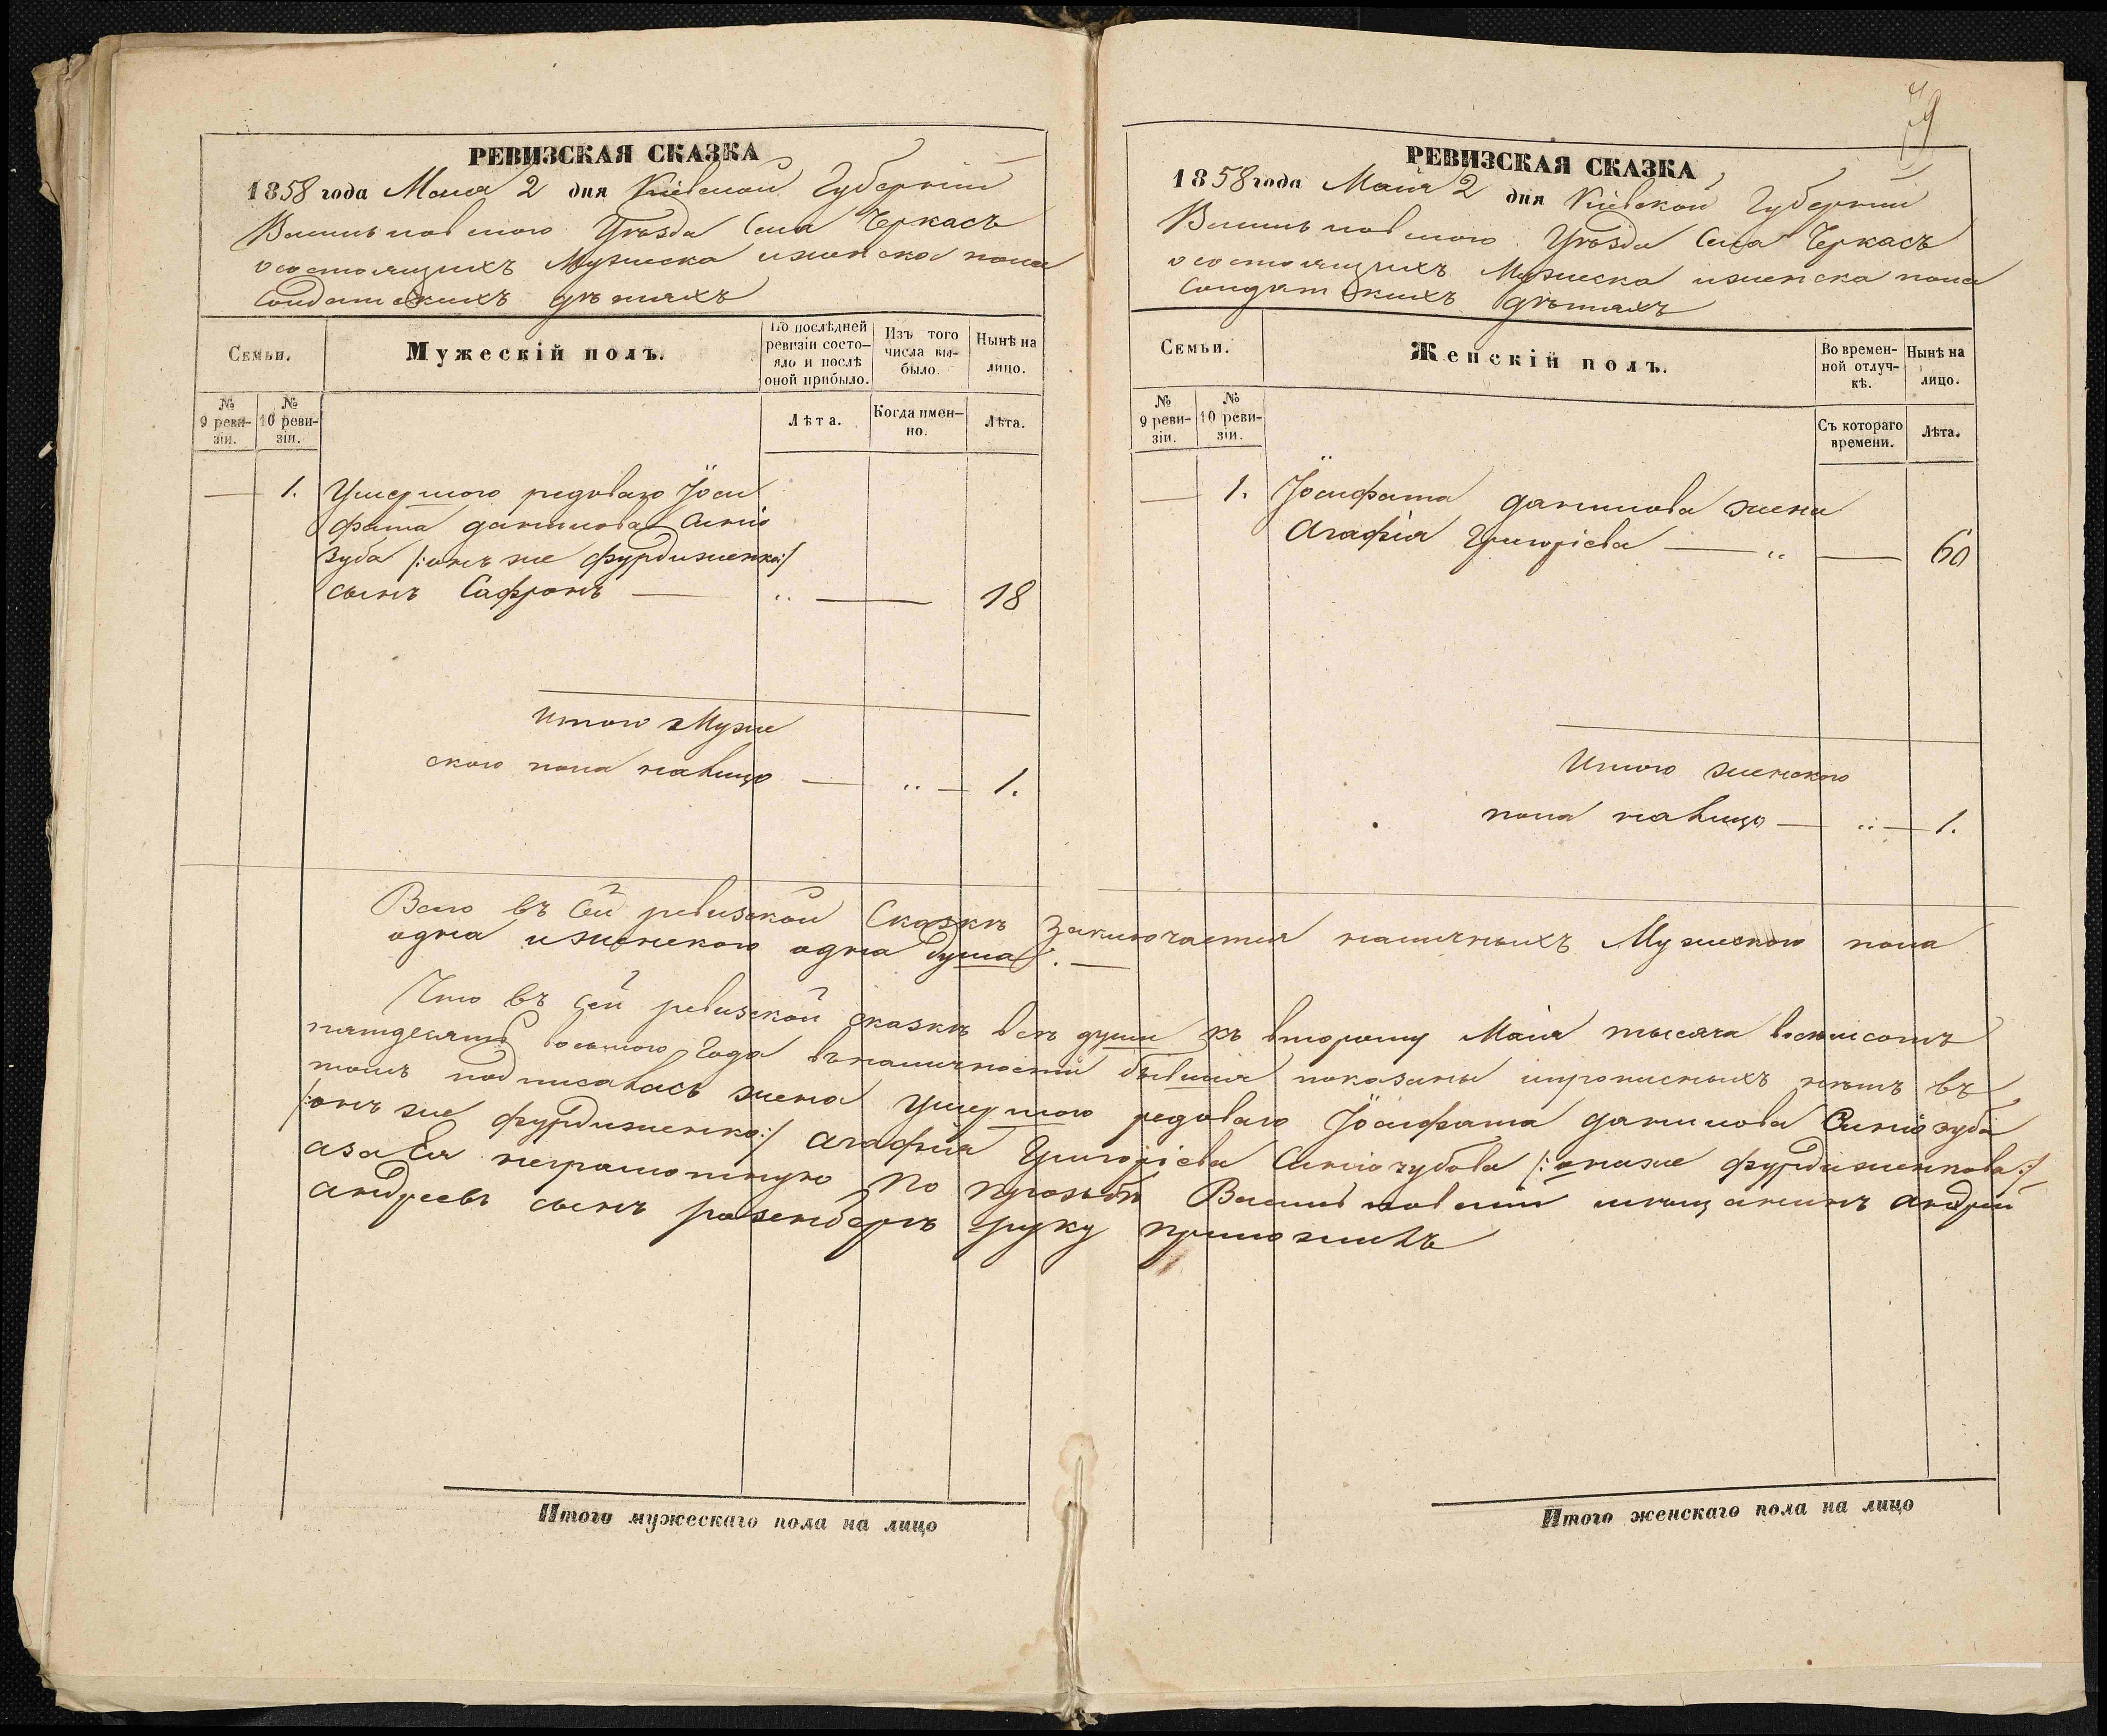 РЕВИЗСКАЯ СКАЗКА
1858 года Маия 2 дня Кіевской Губерніи
Васильковского Уѣзда Села Черкасъ
о состоящихъ Мужеска и женска пола
Солдатскихъ дѣтяхъ
Семьи.
Мужескій полъ.
По послѣдней ревизіи состояло и послѣ оной прибыло.
Изъ того числа выбыло.
Нынѣ на лицо.
№ 9 ревизіи.
№ 10 ревизіи.
Лѣта.
Когда именно.
Лѣта.
— 1. Умершого редоваго Іоси
фата данилова Синіо
зуба /:онъ же фурдиженко:/
сынъ Сафронъ — " — 18
Итого Муже
ского пола налицо — " — 1.
РЕВИЗСКАЯ СКАЗКА
1858 года Маія 2 дня Кіевской Губерніи
Васильковского Уѣзда Села Черкасъ
о состоящихъ Мужеска и женска пола
Солдатскихъ дѣтяхъ
Семьи.
Женскій полъ.
Во временной отлучкѣ.
Нынѣ на лицо.
№ 9 ревизіи.
№ 10 ревизіи.
Съ котораго времени.
Лѣта.
— 1. Іосифата данилова жена
Агафія Григоріева — " — 60
Итого женского
пола налицо — " — 1.
Всего въ Сей ревизской Сказкѣ Заключается наличныхъ Мужеского пола
одна и женского одна душа. —
Что въ Сей ревизской сказкѣ всѣ души къ второму Маія тысяча восемсотъ
пятдесятъ восьмого Года въ наличности бывшія показаны и прописныхъ нѣтъ въ
томъ подписалась жена Умершого редоваго Іосифата данилова Синіозуба
/:онъ же фурдиженко:/ Агафія Григоріева Синіозубова /:она же фурдиженкова:/
а за Ея неграмотную по прозьбѣ Васильковскій мѣщанинъ андрей
андреевъ сынъ розенбергъ руку приложилъ
Итого мужескаго пола на лицо
Итого женскаго пола на лицо